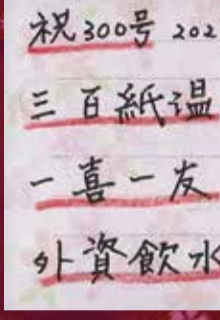 祝300号 202
三百紙温
一喜一友
外資飲水